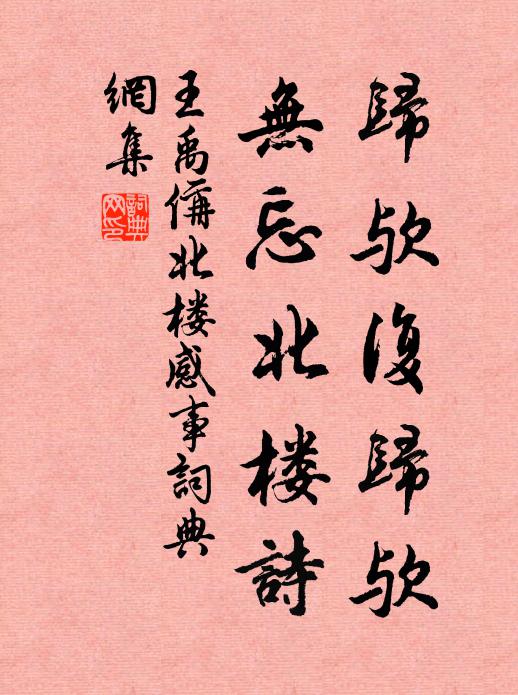 歸欤復歸欤
無忘北楼詩
王禹偁北楼感事詞典
網集
詞典网印